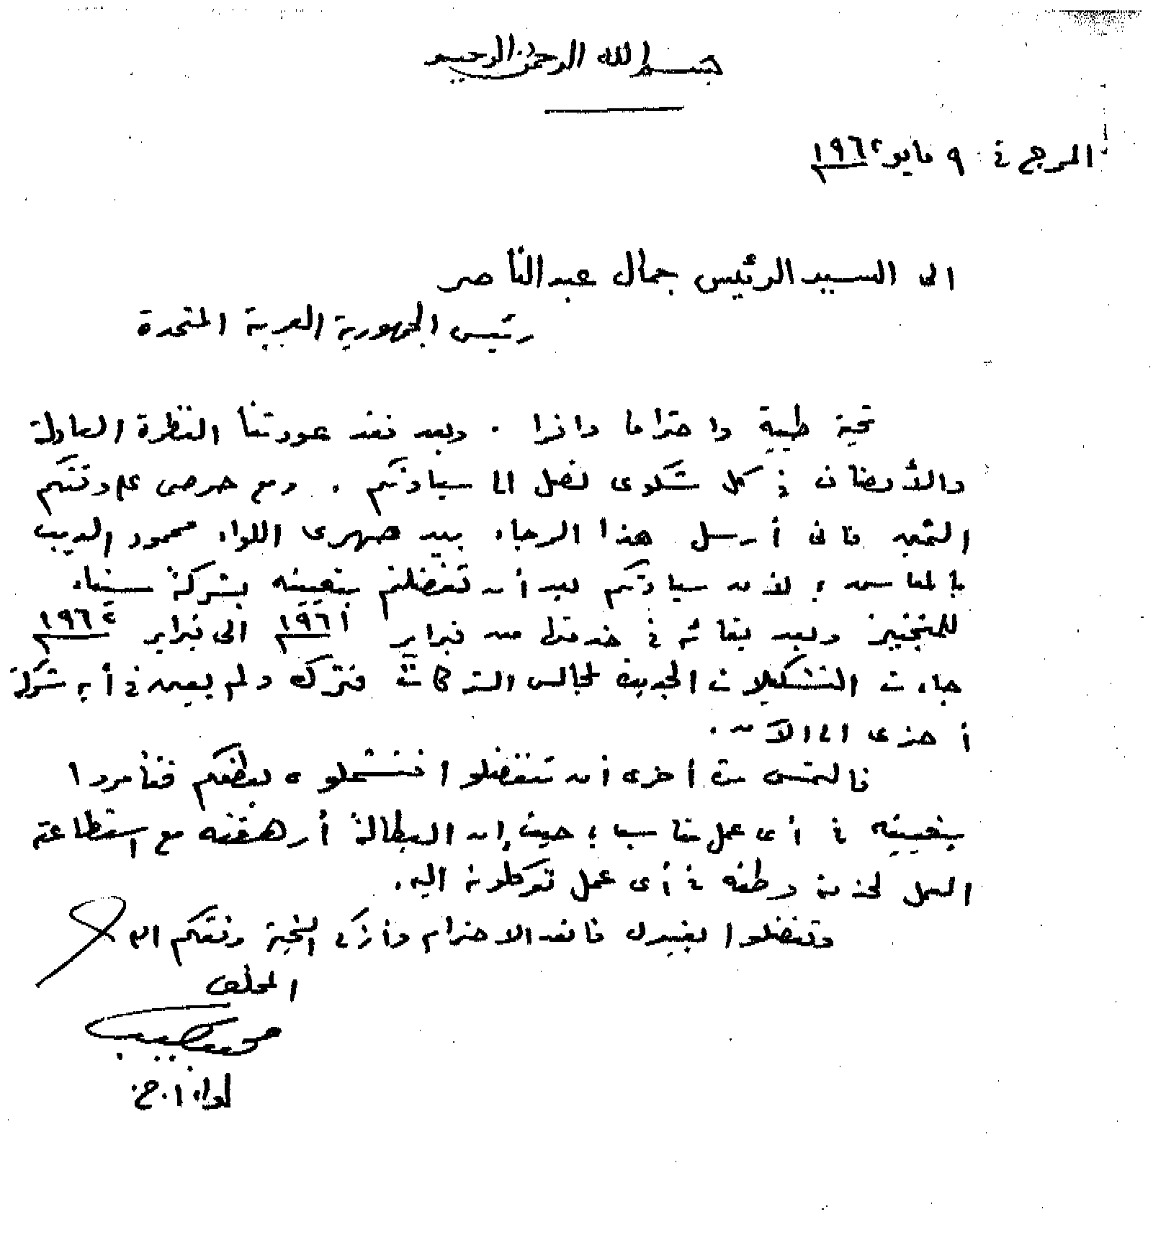 بسم الله الرحمن الرحيم
المرج في ٩ مايو ١٩٦٢
الى السيد الرئيس جمال عبد الناصر
رئيس الجمهورية العربية المتحدة
تحية طيبة واحتراما وافرا . وبعد فقد عودتنا النظرة العادلة
والأنصاف في كل شكوى تصل الى سيادتكم . ومع حرصى على وقتكم
الثمين فانى أرسل هذا الرجاء بيد صهرى اللواء محمود الديب
بالمعاش ؛ لأن سيادتكم بعد أن تفضلتم بتعيينه بشركة سيناء
للمنجنيز وبعد بقائه في خدمتها من فبراير ١٩٦١ الى فبراير ١٩٦٢
جاءت التشكيلات الجديدة لمجالس الشركات فترك ولم يعين في أية شركة
أخرى الى الآن .
فالتمس مرة أخرى أن تتفضلوا فتشملوه بعطفكم فتأمروا
بتعيينه في أى عمل مناسب ؛ حيث إن البطالة أرهقته مع استطاعته
العمل لخدمة وطنه في أى عمل توكلونه اليه .
وتفضلوا بقبول فائق الاحترام وأزكى التحية وفقكم الله
المخلص
محمد نجيب
لواء أ . ح .